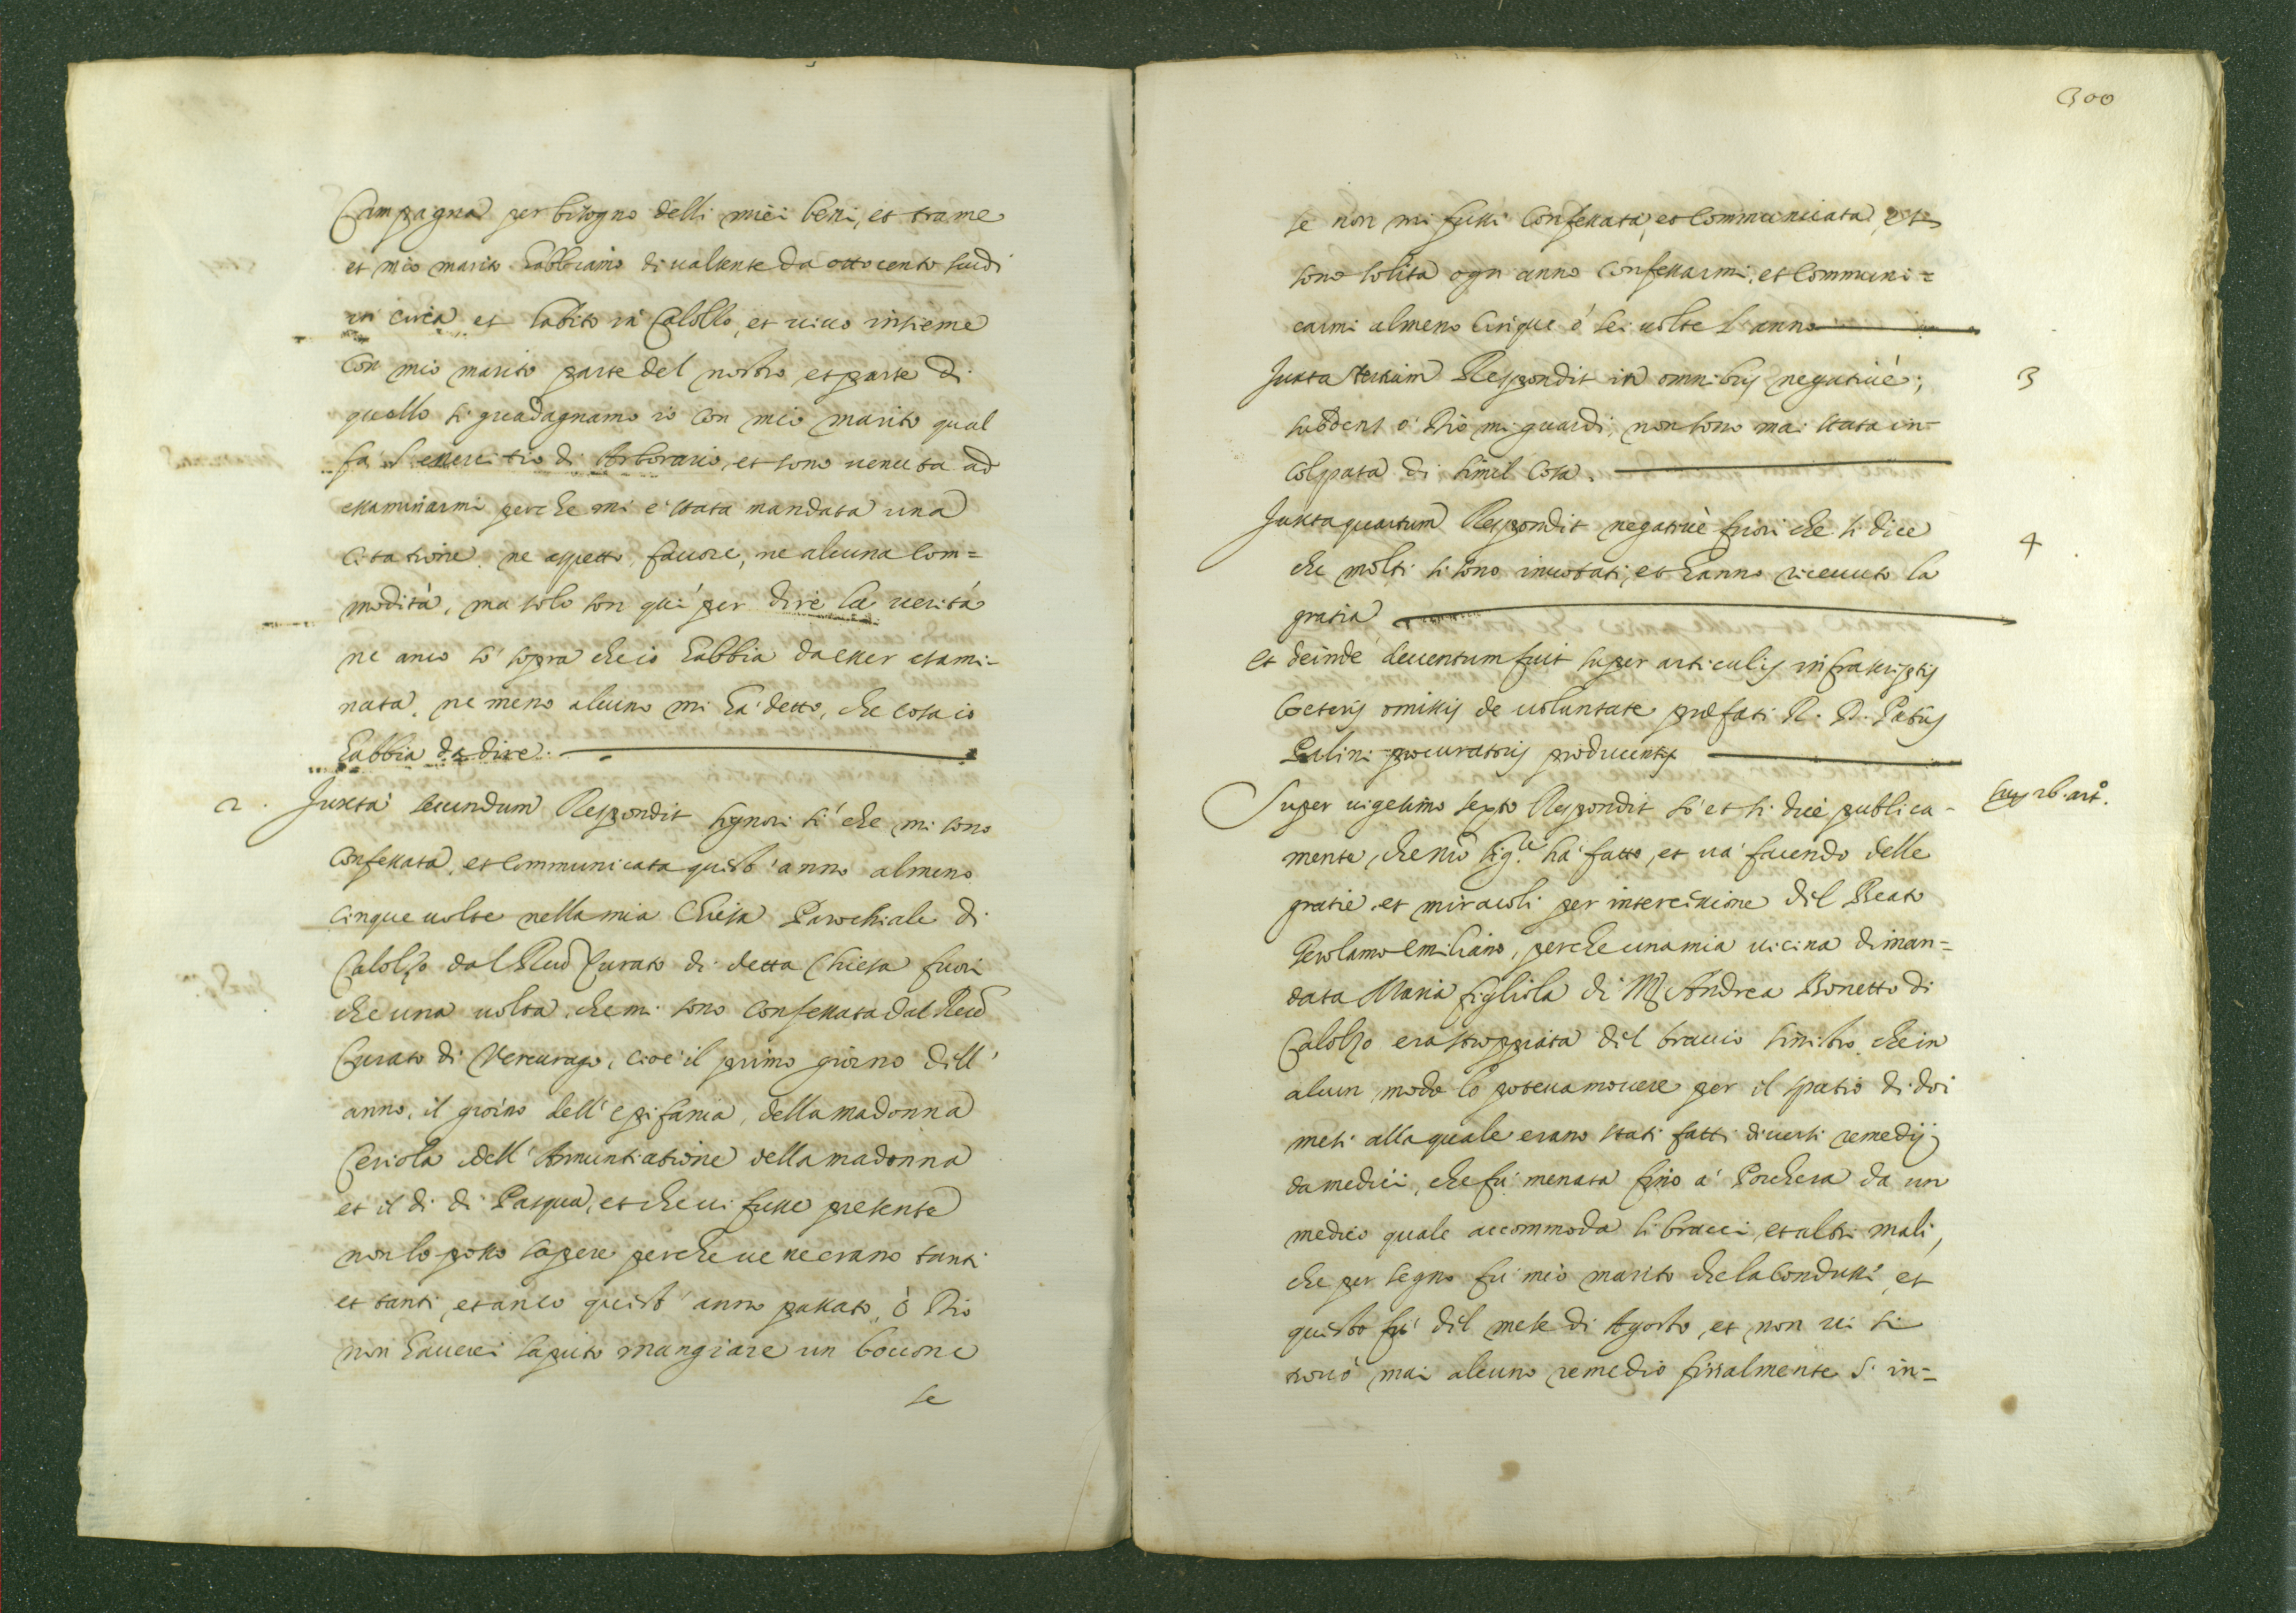 Campagna per bisogno delli miei beni, et tra me
et mio marito habbiamo di valsente da ottocento scudi
in circa, et habito in Calolzo, et vivo insieme
con mio marito parte del nostro, et parte di
quello si guadagnamo io con mio marito qual
fa l'essercitio di Arborario, et sono venuta ad
essaminarmi perche mi è stata mandata una
citatione. ne aspetto favore, ne alcuna com=
modità, ma solo son quì per dire la verità
ne anco sò sopra che io habbia da esser esami-
nata. ne meno alcuno mi hà detto, che cosa io
habbia da dire.
2. Juxta secundum Respondit signori sì che mi sono
confessata, et communicata quest'anno almeno
cinque volte nella mia Chiesa Parochiale di
Calolzo dal Reudo Curato di detta Chiesa fuori
che una volta, che mi sono confessata dal Reudo
Curato di Vercurago, cioè il primo giorno dell'
anno, il giorno dell'epifania, della madonna
Ceriola dell'Annuntiatione della madonna
et il di di Pasqua, et che vi fusse presente
non lo posso sapere perche ve ne erano tanti
et tanti, et anco quest'anno passato, ò Dio
non haverei saputo mangiare un boccone
se
300
se non mi fussi confessata, et communicata, et
sono solita ogn anno confessarmi, et communi=
carmi almeno cinque ò sei volte l'anno
Juxta tertium Respondit in omnibus negativè; 3
subdens ò Dio mi guardi, non sono mai stata in=
colpata di simil cosa.
Juxta quartum Respondit negativè fuori che si dice 4
che molti si sono invotati, et hanno ricevuto la
gratia
et deinde deventum fuit super articulis infrascriptis
cœteris omissis de voluntate prœfati R. D. Patris
Palini procuratoris producentis
Super vigesimo sexto Respondit sò et si dice publica- Sup 26 arto.
mente, che nro Sigre hà fatto, et và facendo delle
gratie, et miracoli per intercessione del Beato
Gerolamo Emiliano, perche una mia vicina diman=
data Maria figliola di Mr Andrea Bonetto di
Calolzo era stroppiata del braccio sinistro, che in
alcun modo lo poteva movere per il spatio di doi
mesi alla quale erano stati fatti diversi remedij
da medici, che fù menata fino à Porchera da un
medico quale accommoda li bracci, et altri mali,
che per segno fù mio marito che la condusse, et
questo fù del mese di Agosto, et non vi si
trovò mai alcuno remedio finalmente s'in=